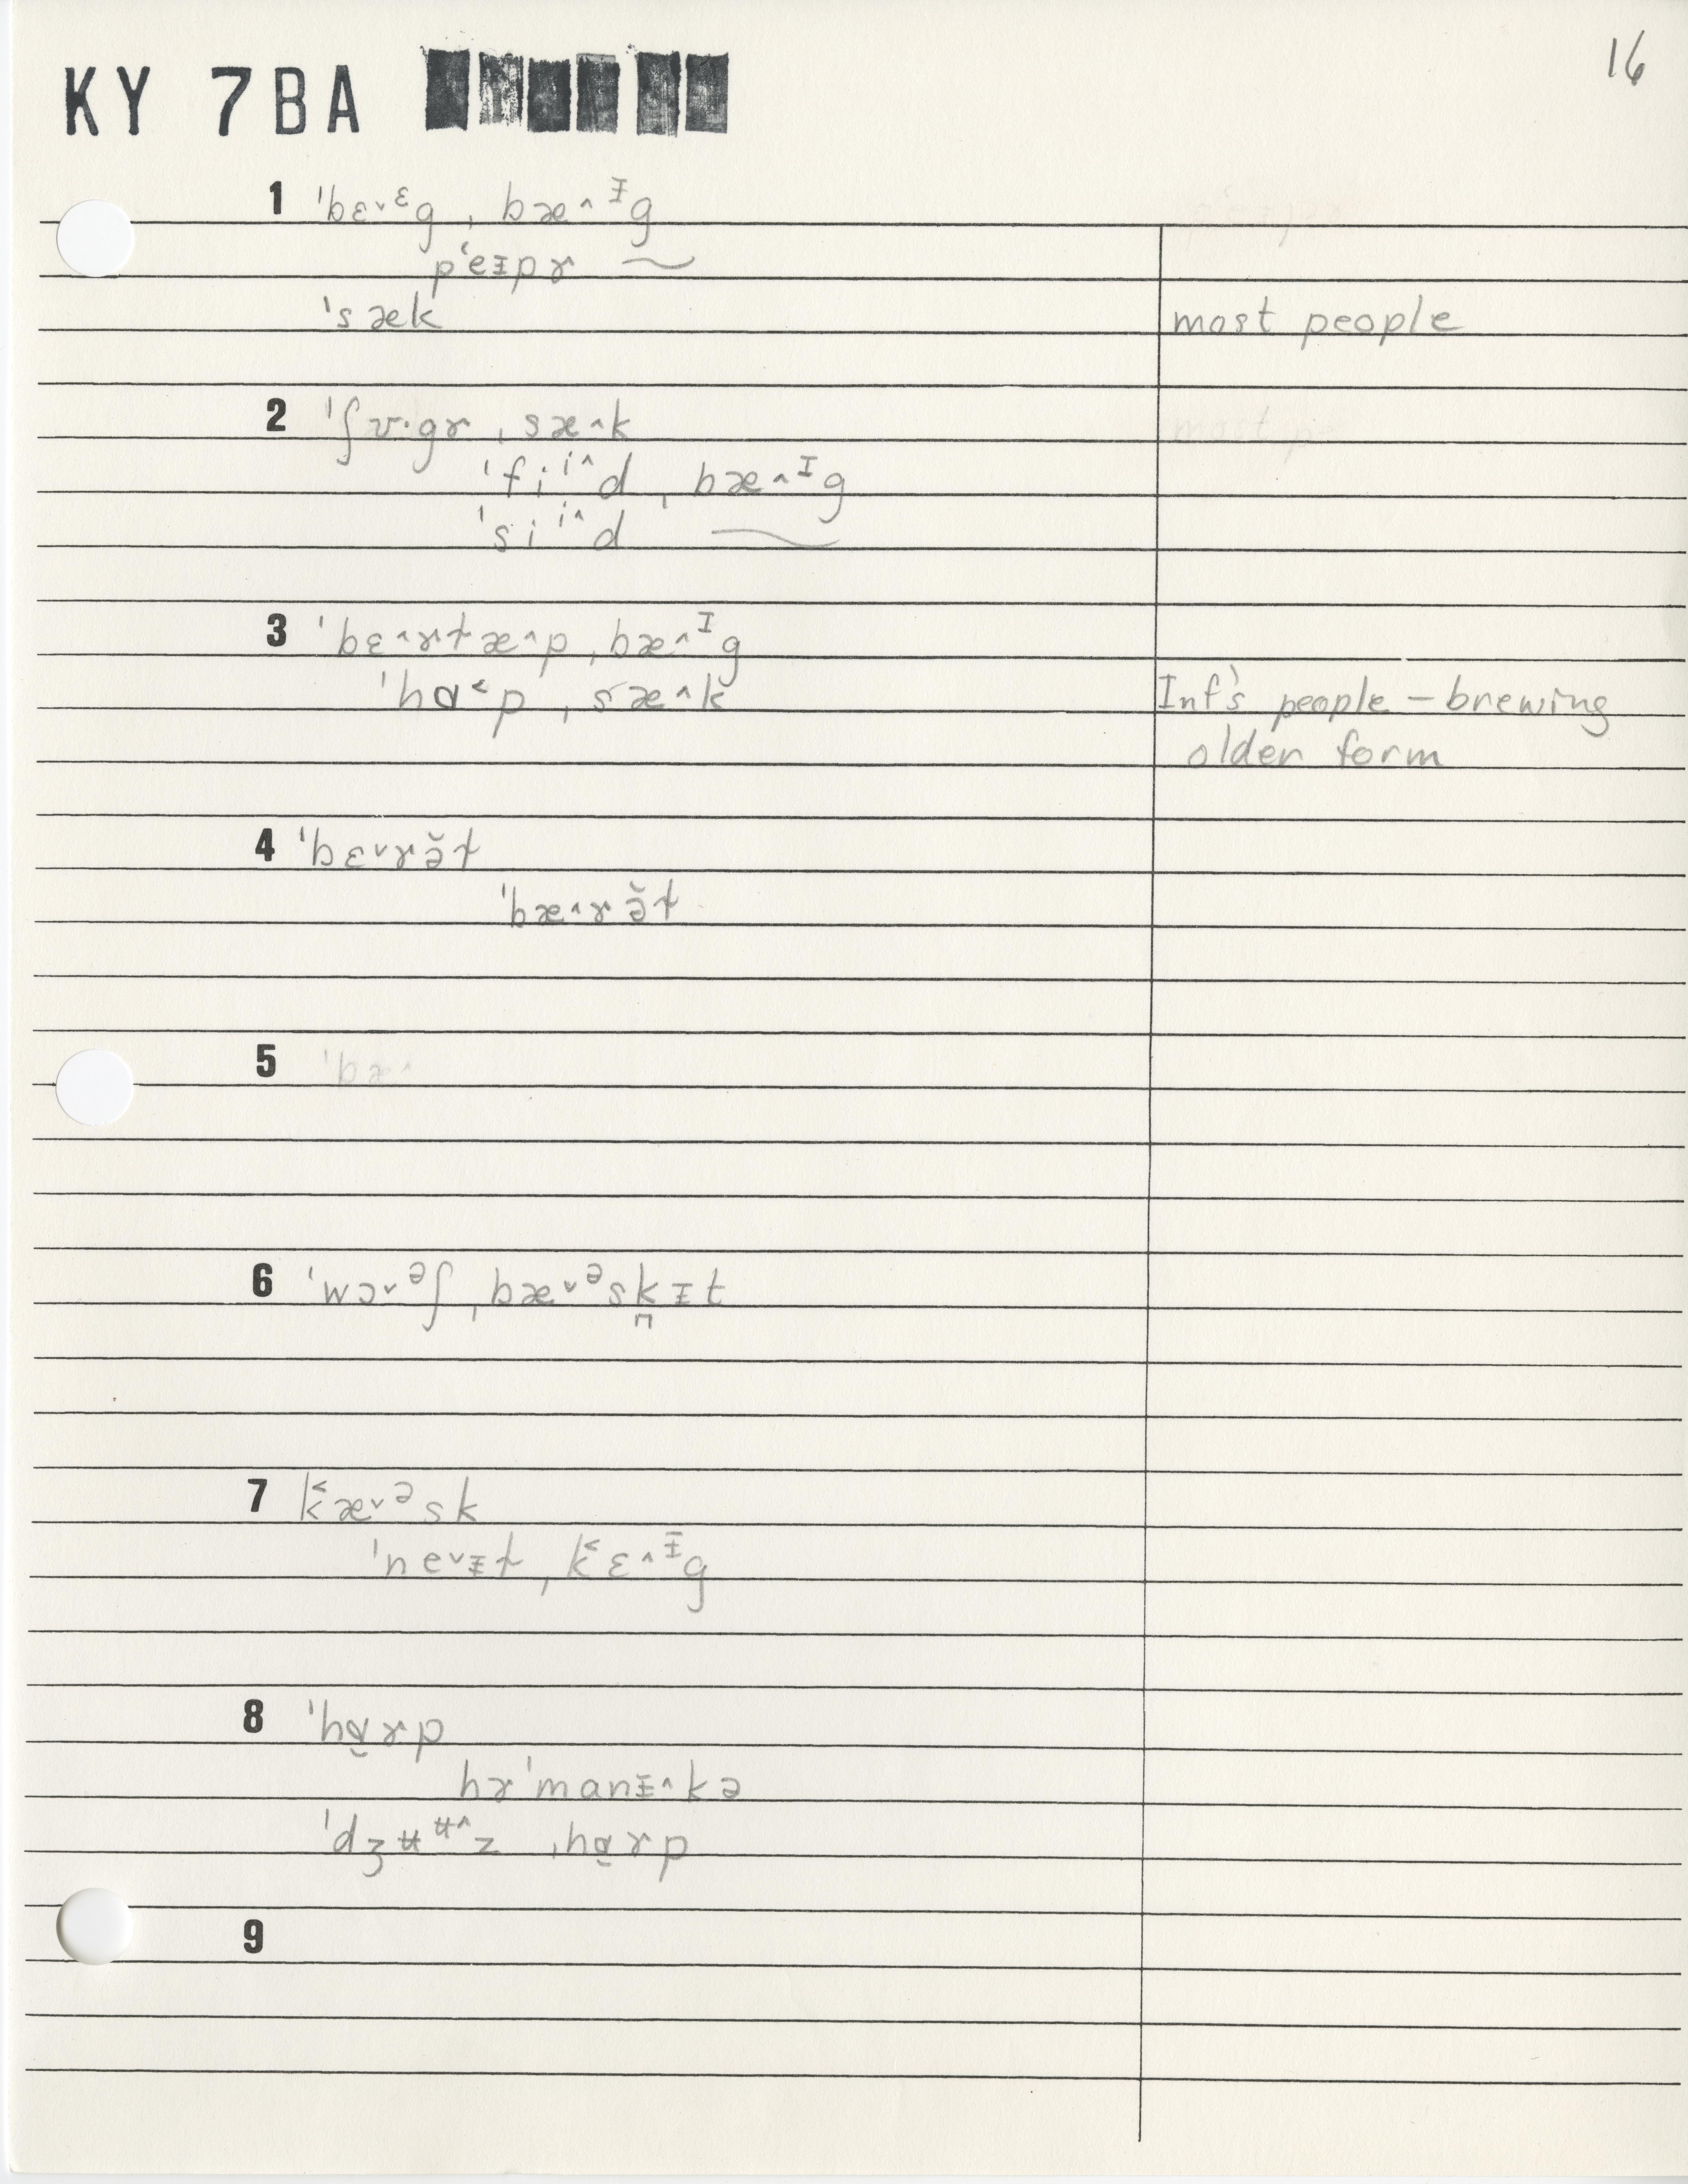 16
KY 7BA
1 ˈbɛ˅ᵋg , bæ˄ᵻg
pʻeᵻpɚ ~
ˈsæk most people
2 ˈʃʊ·gɚ ˌsæ˄k
ˈfiⁱ˄d ˌbæ˄ᶦg
ˈsiⁱ˄d ~
3 ˈbɛ˄ɚtæ˄p ˌbæ˄ᶦg
ˈhɑ˂p ˌsæ˄k Inf's people – brewing
older form
4 ˈbɛ˅ɚə̆ɫ
ˈbæ˄ɚə̆ɫ
5 ˈbæ˄
6 ˈwɔ˅ᵊʃ ˌbæ˅ᵊsk̺ᵻt
7 k˂æ˅ᵊsk
ˈne˅ᵻɫ ˌk˂ɛ˄ᵻg
8 ˈhɑ̮ɚp
hɚˈmanᵻ˄kə
ˈdʒʉᶶ˄z ˌhɑ̮ɚp
9